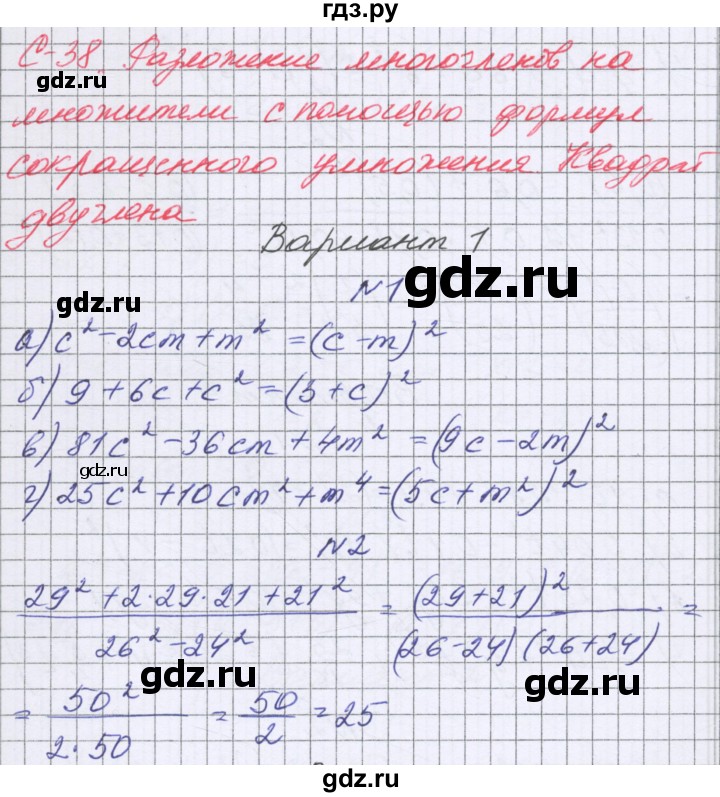 гдз.ру
С-38 Разложение многочленов на
множители с помощью формул
сокращенного умножения. Квадрат
двучлена.
Вариант 1
gdz.ru
№1
gdz.ru
а) c² - 2cm + m² = (c - m)²
б) 9 + 6c + c² = (3 + c)²
в) 81c² - 36cm + 4m² = (9c - 2m)²
gdz.ru
г) 25c² + 10cm² + m⁴ = (5c + m²)²
№2
(29² + 2·29·21 + 21²)/(26² - 24²) = (29 + 21)²/((26 - 24)(26 + 24)) =
gdz.ru
gdz.ru
= 50²/(2·50) = 50/2 = 25
gdz.ru